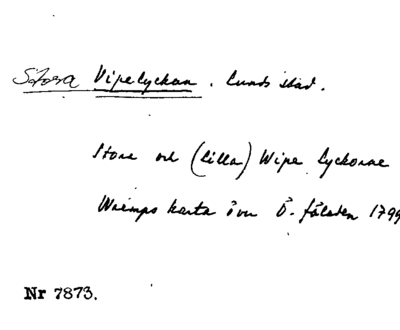 Stora Vipelyckan. Lunds stad.
Stora och (Lilla) Wipe Lyckorne
Wremps karta över Ö. fäladen 1799
Nr 7873.